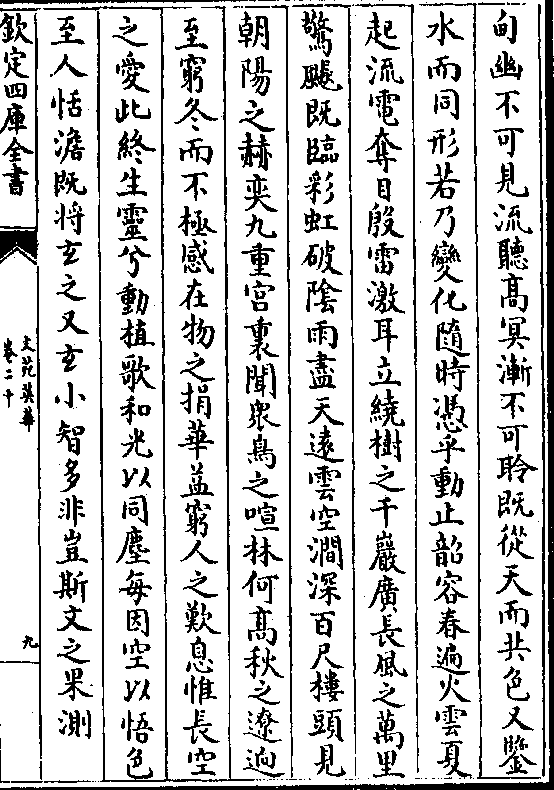 甸幽不可見流聽髙冥漸不可聆既從天而共色又鑒
水而同形若乃變化隨時憑乎動止韶容春遍火雲夏
起流電奪目殷雷激耳立繞樹之千巖廣長風之萬里
驚飈既臨彩虹破隂雨盡天逺雲空澗深百尺樓頭見
朝陽之赫奕九重宫裏聞衆鳥之喧林何髙秋之遼逈
至窮冬而不極感在物之捐華益窮人之歎息惟長空
之愛此終生靈兮動植歌和光以同塵每因空以悟色
至人恬澹既将𤣥之又𤣥小智多非豈斯文之果測
欽定四庫全書
文苑英華
卷二十
九